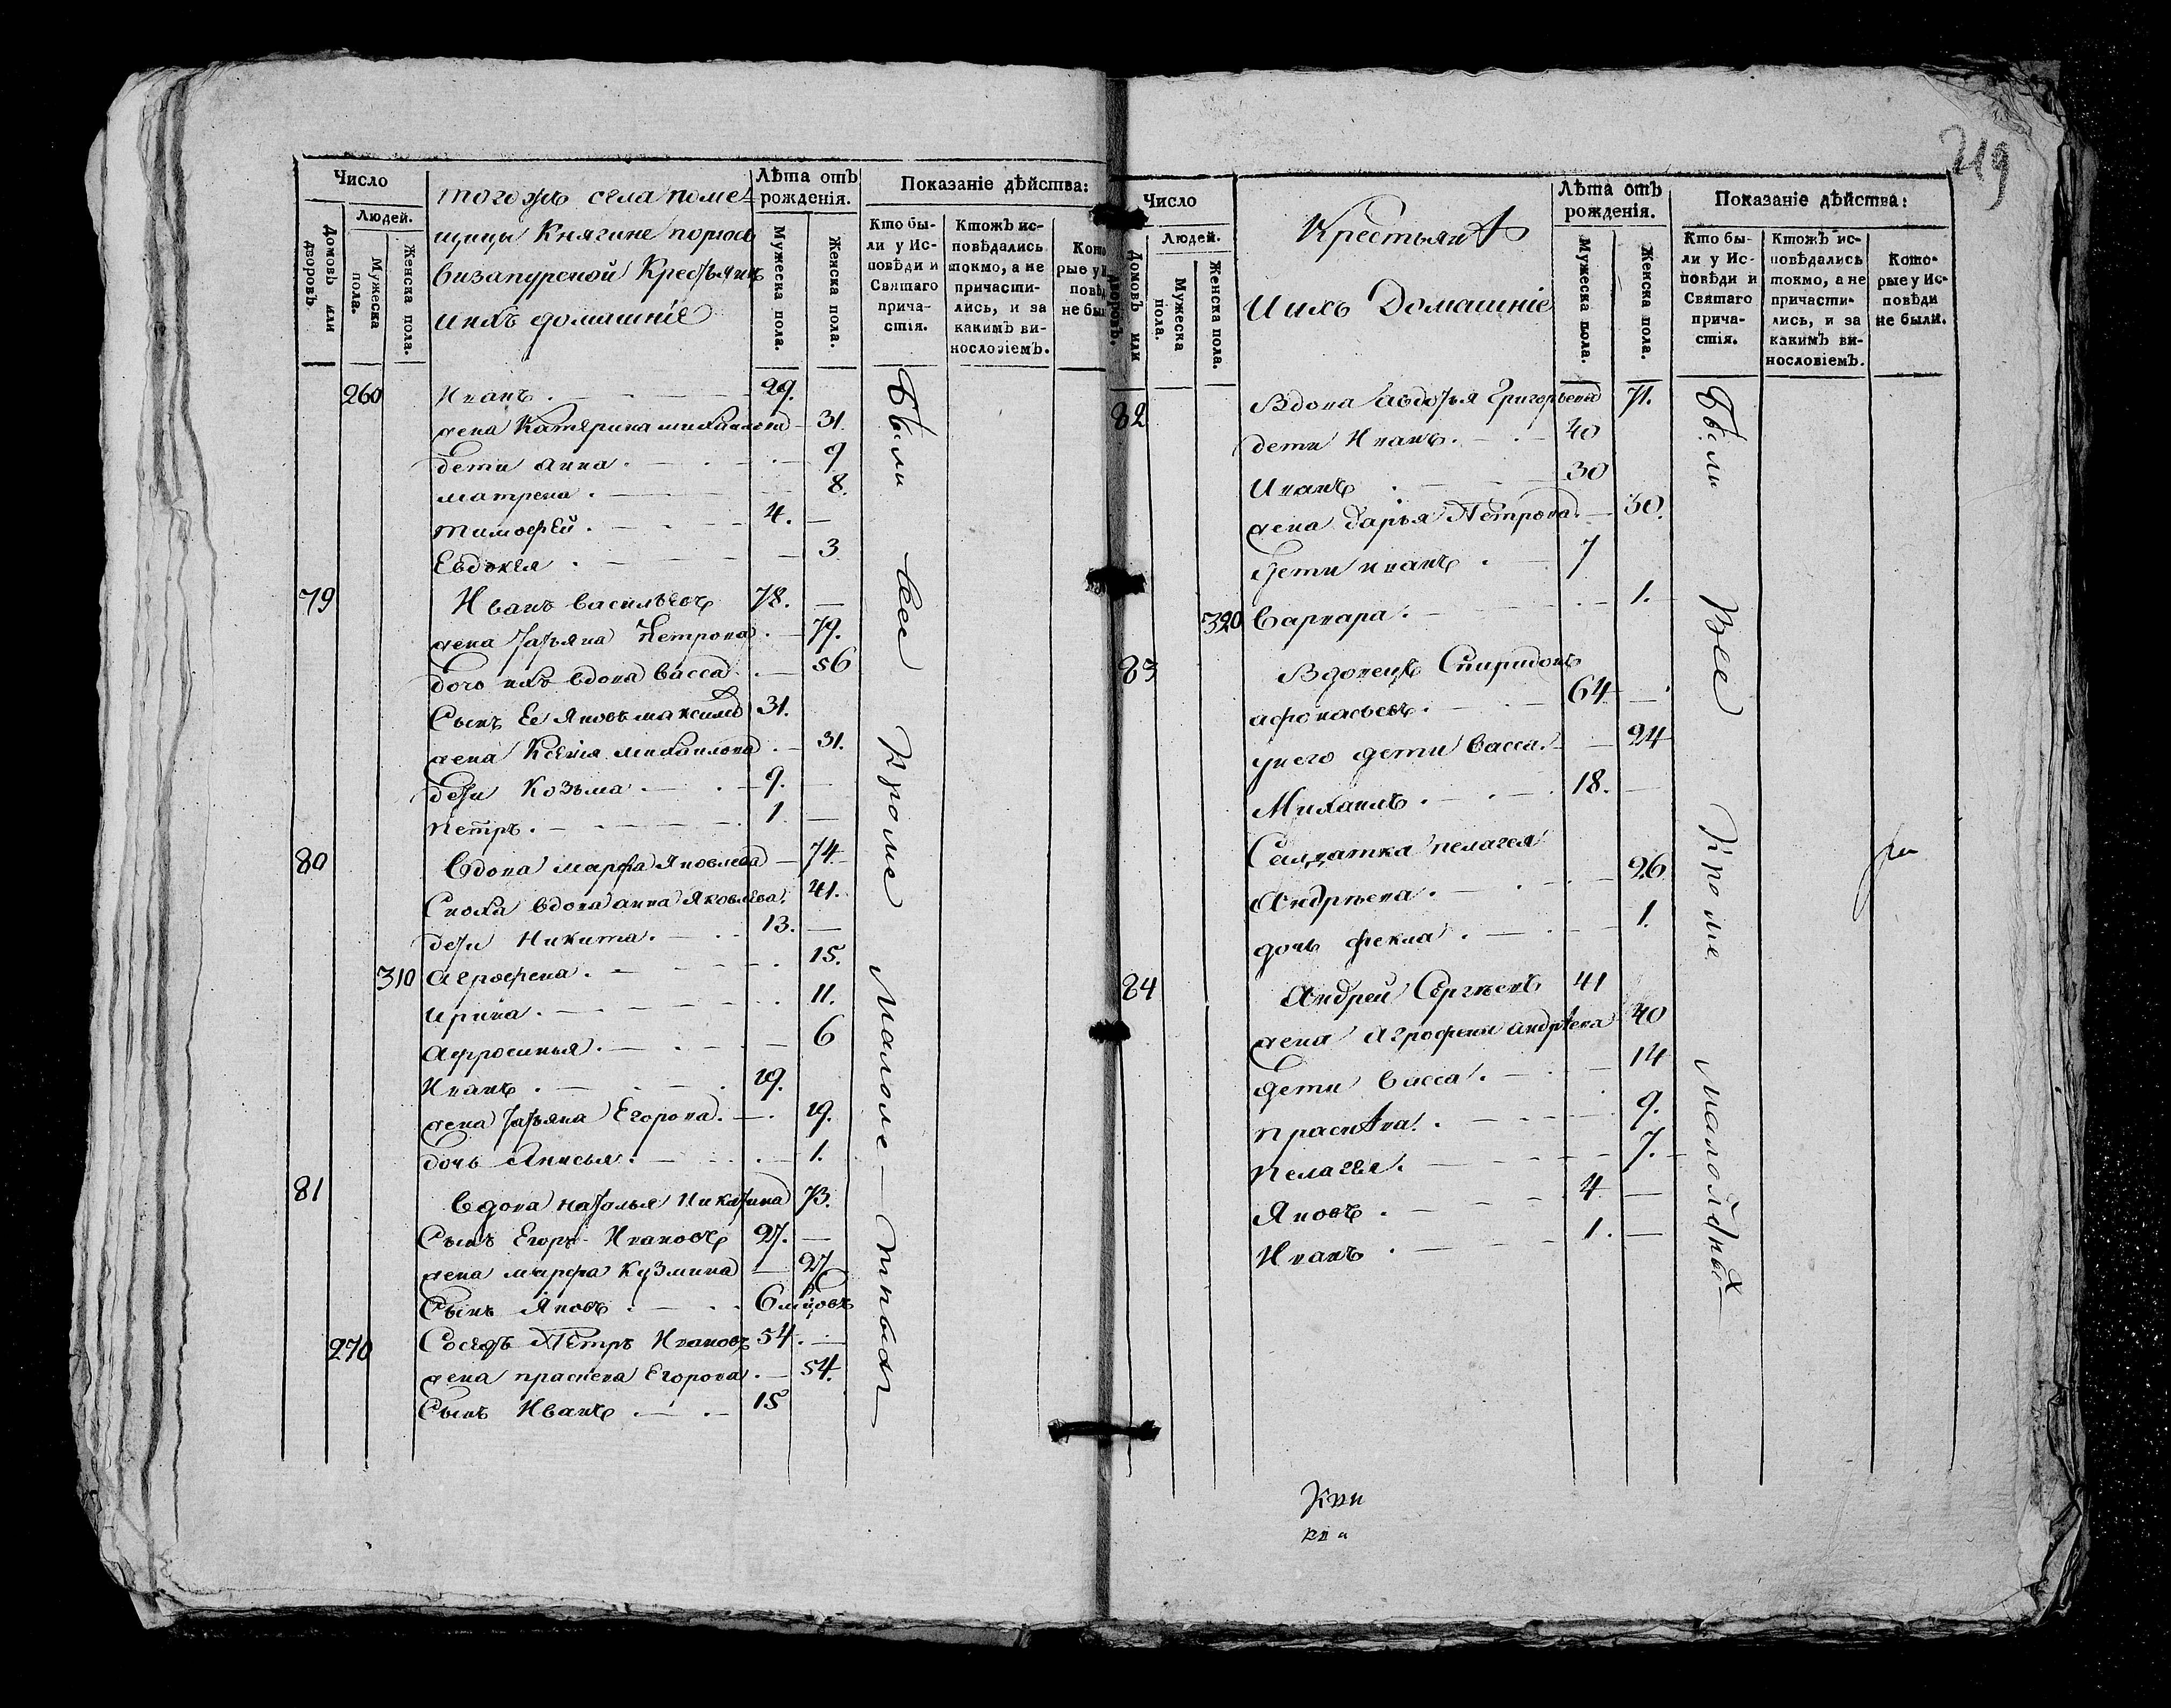 219
Число
Людей.
Домовъ или дворовъ.
Мужеска пола.
Женска пола.
тогожъ села поме-
щицы Княгине
визапурской Крестьянъ
ихъ домашніе
Лѣта отъ рожденія.
Мужеска пола.
Женска пола.
Показаніе дѣйства:
Кто бы-
ли у Ис-
повѣди и
Святаго
прича-
стія.
Ктожъ ис-
повѣдались
токмо, а не
причасти-
лись, и за
какимъ ви-
нословіемъ.
260 Иванъ 29.
жена Катерина михаилова 31.
дети анна 9
матрена 8.
тимофей 4.
Евдокея 3
79 Иванъ васильевъ 78.
жена татьяна Петрова 79.
дочь ихъ вдова васса 56
Сынъ Ее Яковъ максимовъ 31.
жена Ксения михаилова 31.
дети Козьма 9.
петръ 1
80 вдова марфа Яковлева 74
Сноха вдова анна Яковлева 41.
дети Никита 13.
310 агрофена 15.
ирина 11.
афросинья 6
Иванъ 19.
жена татьяна Егорова 19.
дочь Анисья 1.
81 вдова наталья Никитина 73.
Сынъ Егоръ Ивановъ 27.
жена марфа Кузмина 27
Сынъ Яковъ 6 мцовъ
270 Соседъ Петръ Ивановъ 54.
жена прасковa Егорова 54.
Сынъ Иванъ 15
Были все Кроме Малоле-тныхъ
Число
Людей.
Домовъ или дворовъ.
Мужеска пола.
Женска пола.
Крестьянѣ
И ихъ Домашніе
Лѣта отъ рожденія.
Мужеска пола.
Женска пола.
Показаніе дѣйства:
Кто бы-
ли у Ис-
повѣди и
Святаго
прича-
стія.
Ктожъ ис-
повѣдались
токмо, а не
причасти-
лись, и за
какимъ ви-
нословіемъ.
Кото-
рые у Ис-
повѣди
не были.
82 Вдова авдотья Григорьева 71.
дети Иванъ 40
Иванъ 30
жена дарья Петрова 30.
дети иванъ 7
320 варвара 1.
83 Вдовецъ Спиридонъ
афонасьевъ 64
у него дети васса 24
Михаилъ 18.
Салдатка пелагея
Андрѣева 26
дочь фекла 1.
84 Андрей Сѣргѣевъ 41
жена агрофена андрѣева 40
дети васса 14
прасковa 9.
пелагея 7.
Яковъ 4
Иванъ 1.
Были Все Кроме малолѣтныхъ